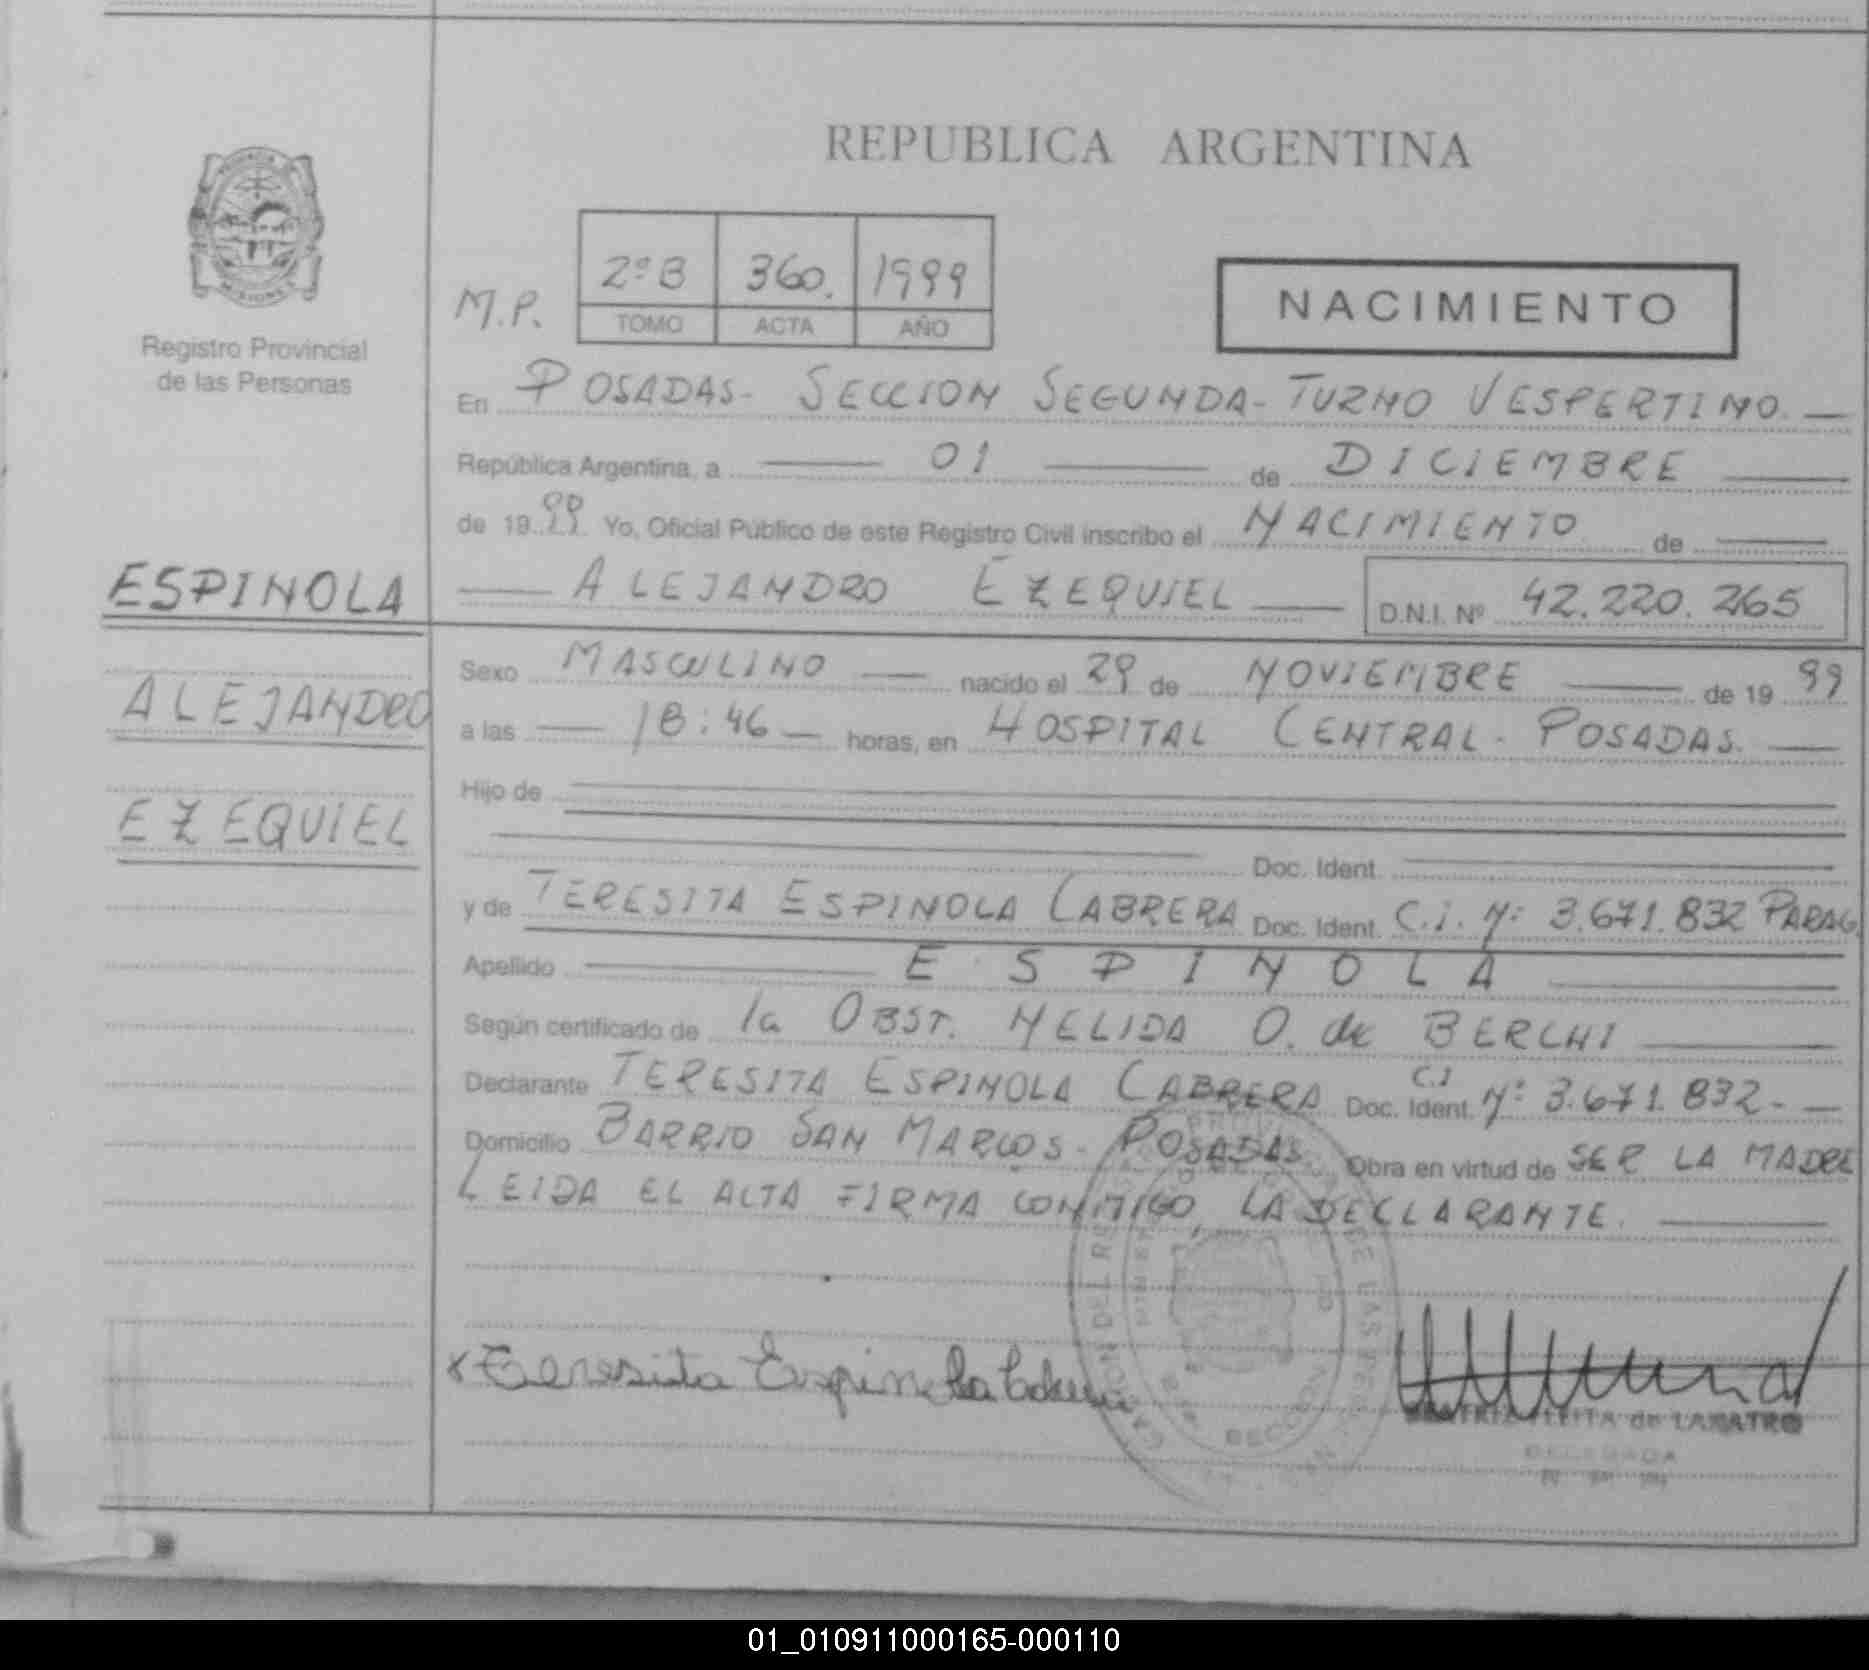 REPUBLICA ARGENTINA
MISIONES
Registro Provincial
de las Personas
M.P.
2º B 360. 1999
TOMO ACTA AÑO
NACIMIENTO
En POSADAS- SECCION SEGUNDA- TURNO VESPERTINO.
República Argentina, a 01 de DICIEMBRE
de 1999 Yo, Oficial Público de este Registro Civil inscribo el NACIMIENTO de
ALEJANDRO EZEQUIEL D.N.I. Nº 42.220.265
ESPINOLA
ALEJANDRO
EZEQUIEL
Sexo MASCULINO nacido el 29 de NOVIEMBRE de 19 99
a las 18:46 horas, en HOSPITAL CENTRAL- POSADAS.
Hijo de
Doc. Ident.
y de TERESITA ESPINOLA CABRERA Doc. Ident. C.I. Nº 3.671.832 PARAG.
Apellido ESPINOLA
Según certificado de la OBST. NELIDA O. de BERCHI
Declarante TERESITA ESPINOLA CABRERA Doc. Ident. C.I Nº 3.671.832-
Domicilio BARRIO SAN MARCOS- POSADAS Obra en virtud de SER LA MADRE
LEIDA EL ACTA FIRMA CONMIGO, LA DECLARANTE.
x Teresita Espinola
de LAMATRO
DELEGADA
01_010911000165-000110